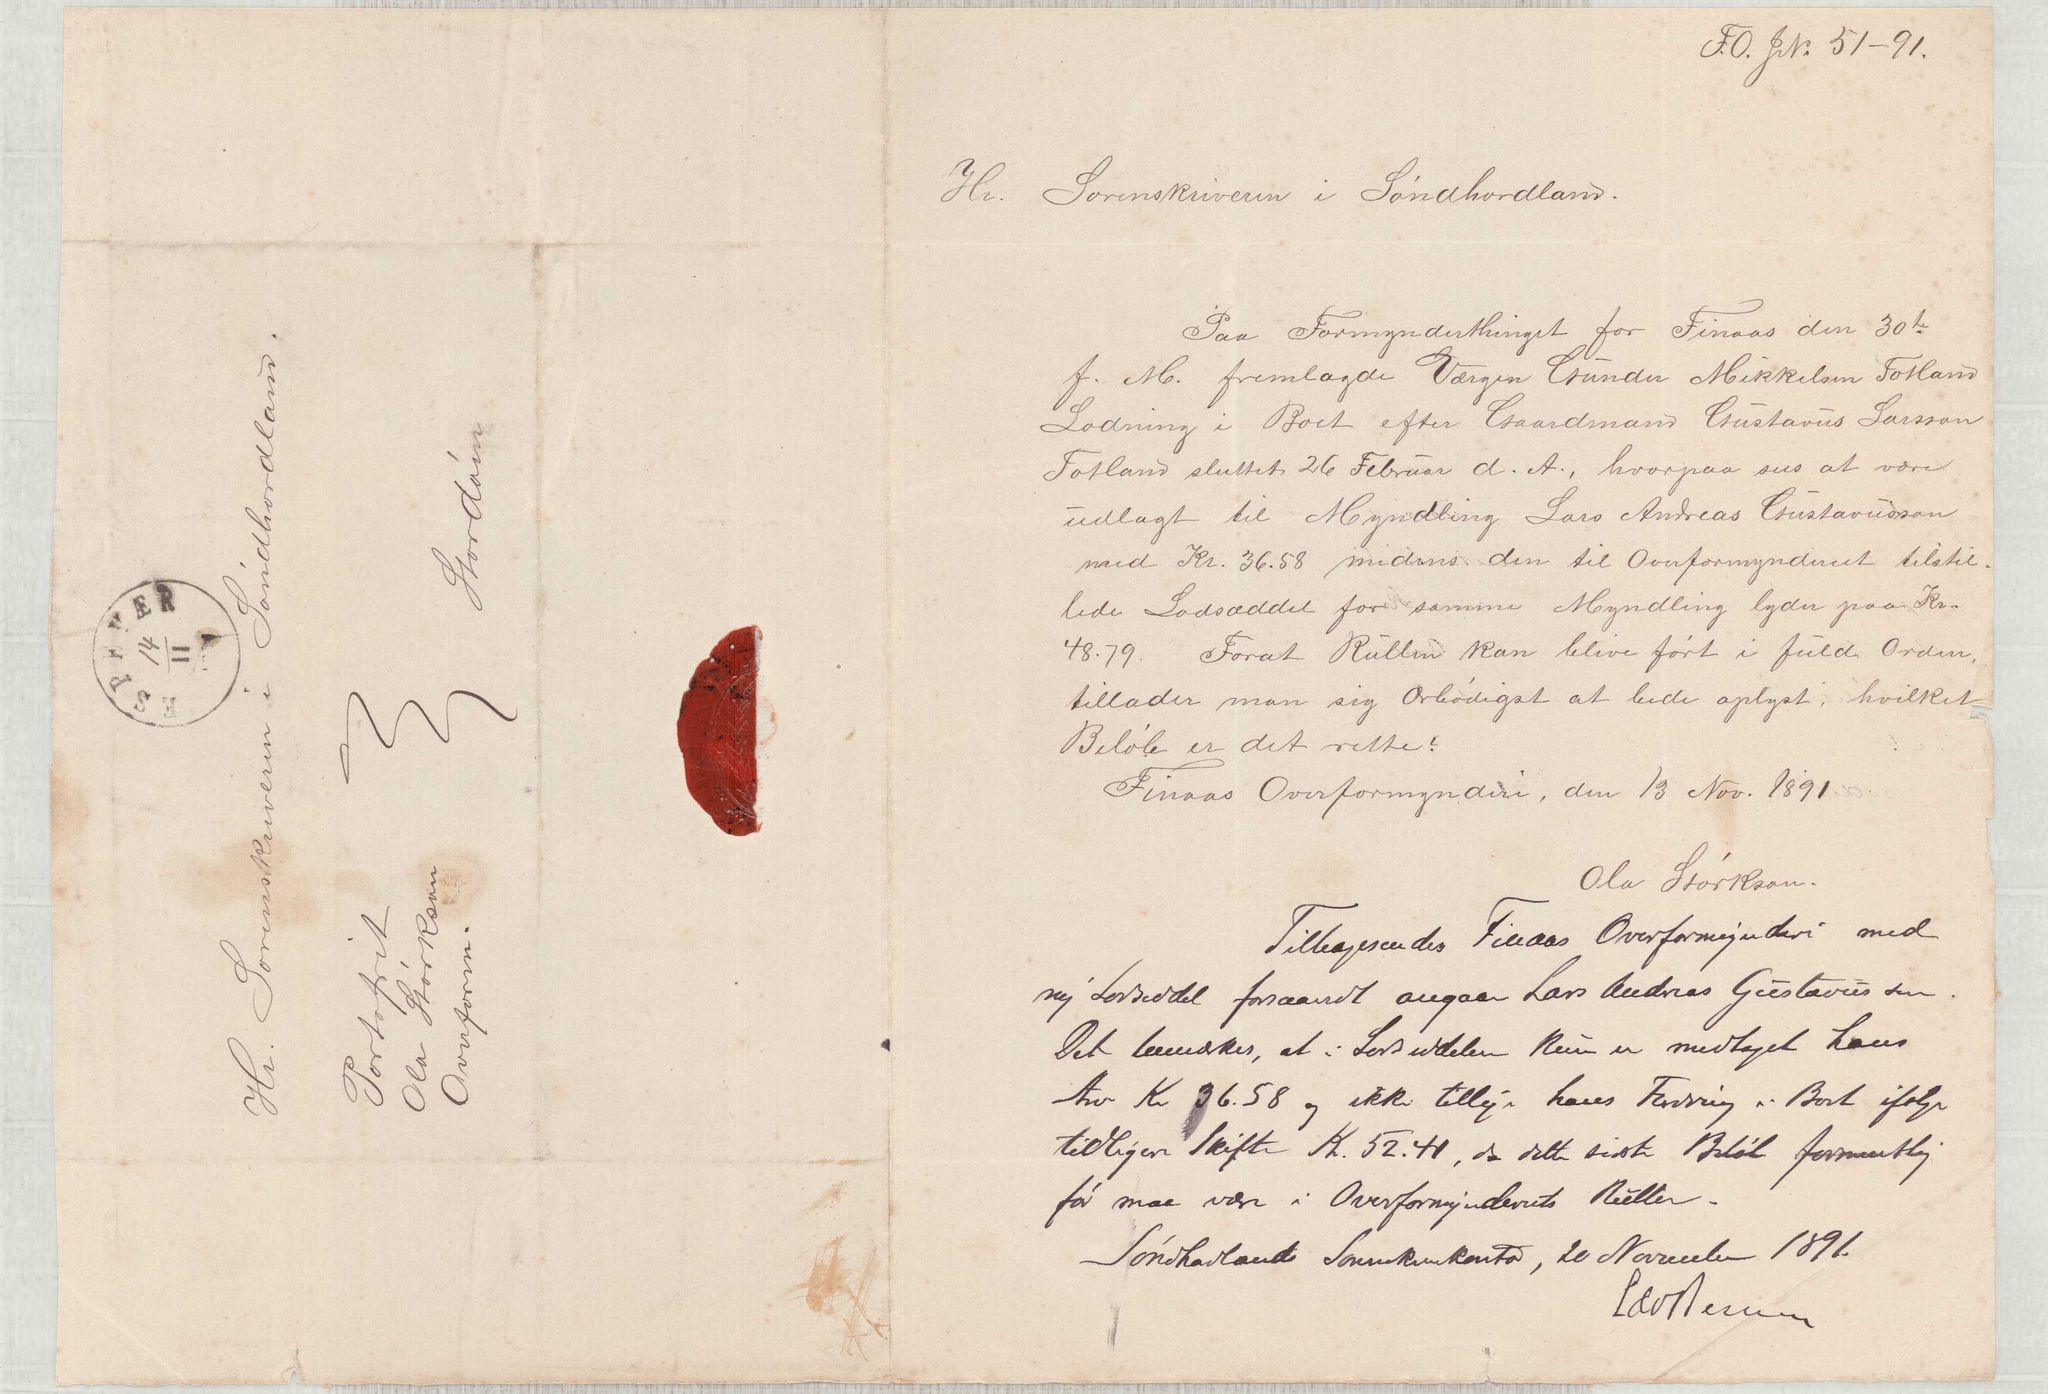 F.O. JN. 51-91.
Hr. Sorenskriveren i Söndhordland.
Paa Formynderthinget for Finaas den 30te
f. M. fremlagde Værgen Gunder Mikkelsen Totland
Lodning i Boet efter Gaardmand Gustavus Larsson
Totland sluttet 26 Februar d. A., hvorpaa sees at være
udlagt til Myndling Lars Andreas Gustavusson
med Kr. 36.58 medens den til Overformynderiet tilstil-
lede Lodseddel for samme Myndling lyder paa Kr.
48.79. Forat Rullen kan blive ført i fuld Orden,
tillader man sig Ørbödigst at bede oplyst, hvilket
Belöb er det rette?
Finaas Overformynderi, den 13 Nov. 1891
Ola Störkson.
Tilbagesendes Finaas Overformynderi med
ny Lodseddel forsaavidt angaar Lars Andreas Gustavussen.
Det bemærkes, at i Lodseddelen kun er medtaget hans
Arv Kr 36.58 og ikke tillige hans Fordring i Boet ifølge
tidligere Skifte Kr. 52.41, da dette sidste Beløb formentlig
før maa være i Overformynderiets Rulle.
Söndhordlands Sorenskriverkontor, 20 November 1891.
Hr. Sorenskriveren i Söndhordland.
Portofrit
Ola Störkson
Overform.
Stordöen
ESPEVÆR
14
11